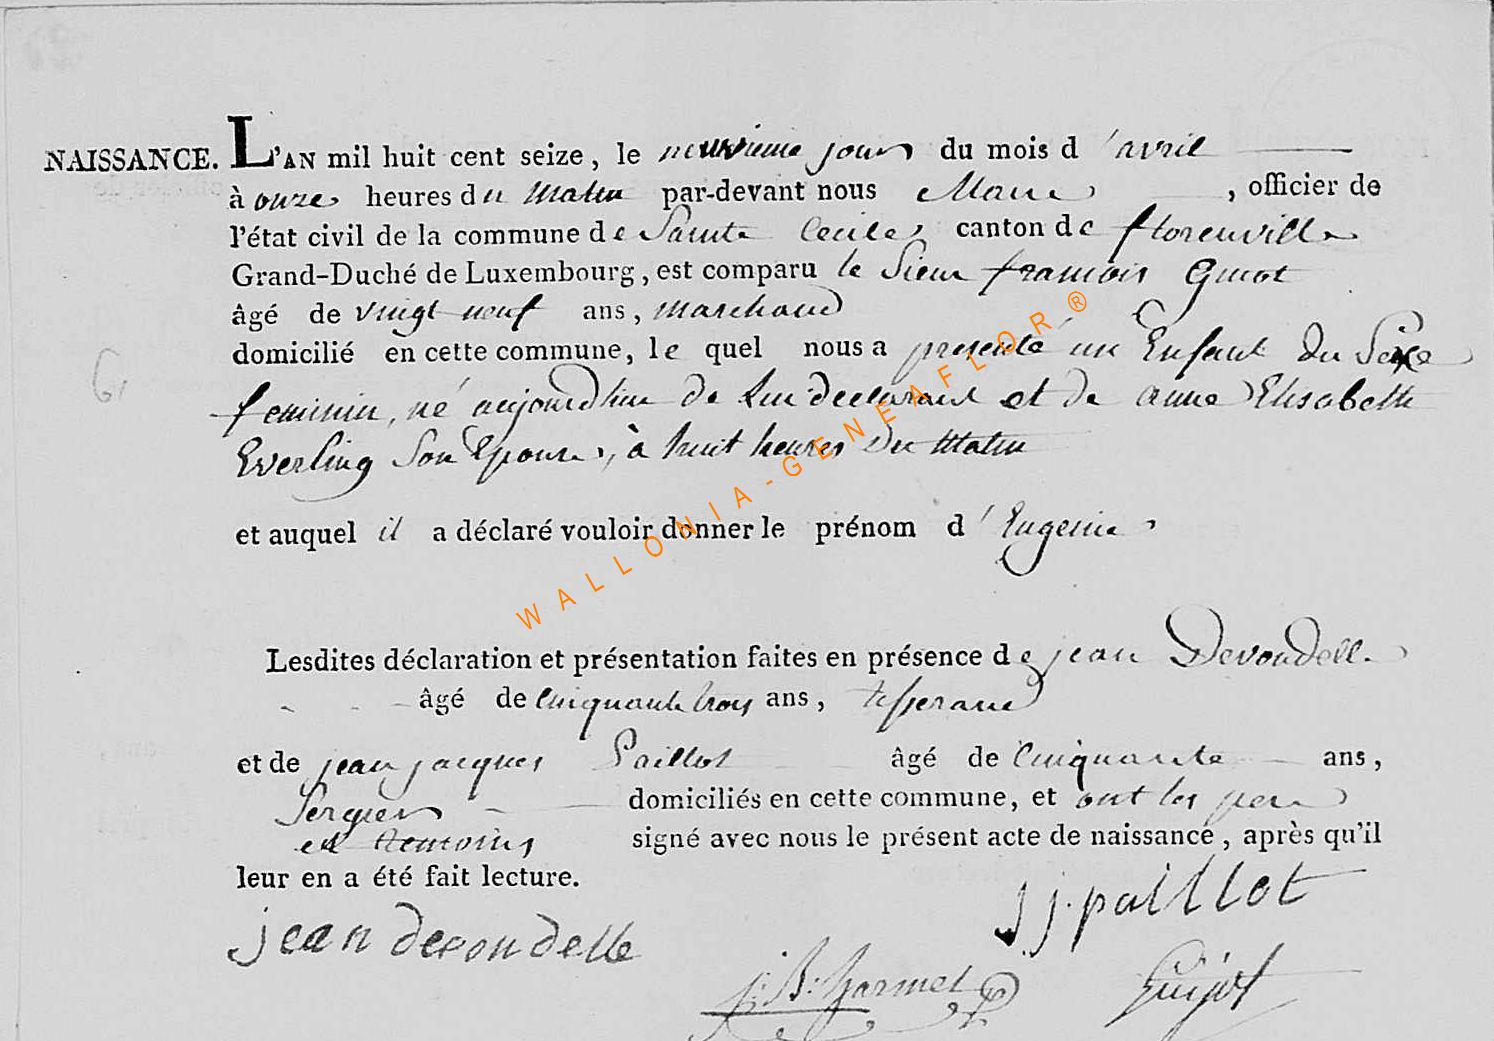 NAISSANCE. L'AN mil huit cent seize, le neuvieme jour du mois d'avril
à onze heures du matin par-devant nous Maire, officier de
l'état civil de la commune de Sainte Cecile, canton de florenville
Grand-Duché de Luxembourg, est comparu le Sieur françois Guiot
âgé de vingt neuf ans, marchand
domicilié en cette commune, le quel nous a presenté un Enfant du Sexe
feminin, né aujourdhui de lui declarant et de anne Elisabeth
Everling Son Epouse, à huit heures du matin
et auquel il a déclaré vouloir donner le prénom d'Eugenie
Lesdites déclaration et présentation faites en présence de jean Devondelle
âgé de Cinquante trois ans, tisserand
et de jean jacques Paillot âgé de Cinquante ans,
Sergier domiciliés en cette commune, et ont les pere
et temoins signé avec nous le présent acte de naissance, après qu'il
leur en a été fait lecture.
j j. paillot
jean devondelle
j: B: harmel
Guijot
WALLONIA-GENEAFLOR®